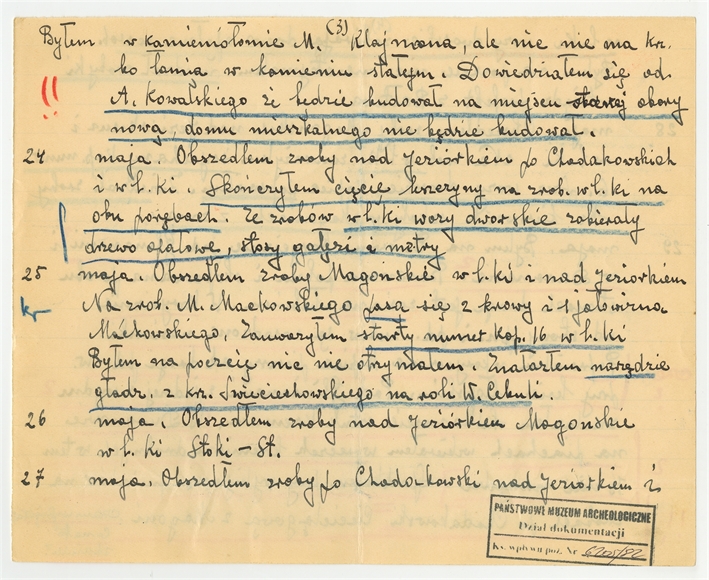 (3)
Byłem w kamieniołomie M. Klajnmana, ale nic nie ma kr.
ko łania w kamieniu stałym. Dowiedziałem się od
!! A. Kowalskiego że będzie budował na miejscu starej obory
nową, domu mieszkalnego nie będzie budował.
24 maja. Obszedłem zroby nad Jeziórkiem po Chodakowskich
i w l. ki. Skończyłem cięcie krzewyny na zrob. w l. ki na
obu porębach. Ze zrobów w l. ki wozy dworskie zabierały
drzewo opałowe, stosy gałęzi i metry
25 maja. Obszedłem zroby Magońskie w l. ki i nad Jeziorkiem
kr Na zrob. M. Maćkowskiego pasą się 2 krowy i 1 jałowizna
Maćkowskiego, Zauważyłem starły numer kop. 16 w l. ki
Byłem na poczcie nic nie otrzymałem. Znalazłem narzędzie
gładz. z krz. Świeciechowskiego na roli W. Cebuli.
26 maja. Obszedłem zroby nad Jeziórkiem Magońskie
w l. ki Stoki – St.
27 maja. Obszedłem zroby po Chodakowski nad Jeziorkiem i
PAŃSTWOWE MUZEUM ARCHEOLOGICZNE
Dział dokumentacji
Ks. wpływu poz. Nr